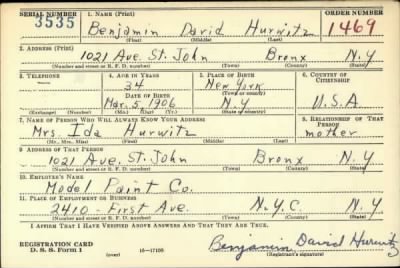 SERIAL NUMBER 1. NAME (Print) ORDER NUMBER
3535 Benjamin David Hurwitz 1469
(First) (Middle) (Last)
2. ADDRESS (Print)
1021 Ave. St. John Bronx N.Y
(Number and street or R. F. D. number) (Town) (County) (State)
3. TELEPHONE 4. AGE IN YEARS 5. PLACE OF BIRTH 6. COUNTRY OF CITIZENSHIP
34 New York
DATE OF BIRTH (Town or county)
Mar. 5, 1906 N.Y U.S.A
(Exchange) (Number) (Mo.) (Day) (Yr.) (State or country)
7. NAME OF PERSON WHO WILL ALWAYS KNOW YOUR ADDRESS 8. RELATIONSHIP OF THAT PERSON
Mrs. Ida Hurwitz mother
(Mr., Mrs., Miss) (First) (Middle) (Last)
9. ADDRESS OF THAT PERSON
1021 Ave. St. John Bronx N.Y
(Number and street or R. F. D. number) (Town) (County) (State)
10. EMPLOYER'S NAME
Model Paint Co.
11. PLACE OF EMPLOYMENT OR BUSINESS
2410 - First Ave. N.Y.C. N.Y
(Number and street or R. F. D. number) (Town) (County) (State)
I AFFIRM THAT I HAVE VERIFIED ABOVE ANSWERS AND THAT THEY ARE TRUE.
REGISTRATION CARD
D. S. S. Form 1 (over) 16—17105 Benjamin David Hurwitz
(Registrant's signature)